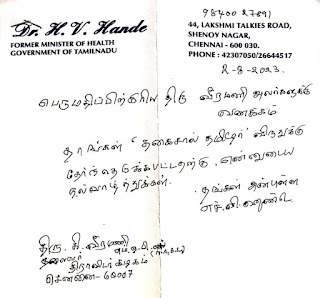 98400 27891
Dr. H. V. Hande
FORMER MINISTER OF HEALTH
GOVERNMENT OF TAMILNADU
44, LAKSHMI TALKIES ROAD,
SHENOY NAGAR,
CHENNAI - 600 030.
PHONE : 42307050/26644517
2-8-2023.
பெருமதிப்பிற்குரிய திரு வீரமணி அவர்களுக்கு
வணக்கம்
தாங்கள் 'தகைசால் தமிழர்' விருதுக்கு
தேர்ந்தெடுக்கப்பட்டதற்கு என்னுடைய
நல்வாழ்த்துக்கள்.
தங்கள் அன்புள்ள
எச்.வி.ஹண்டே
திரு. கி. வீரமணி
தலைவர்
திராவிடர் கழகம்
சென்னை-60007